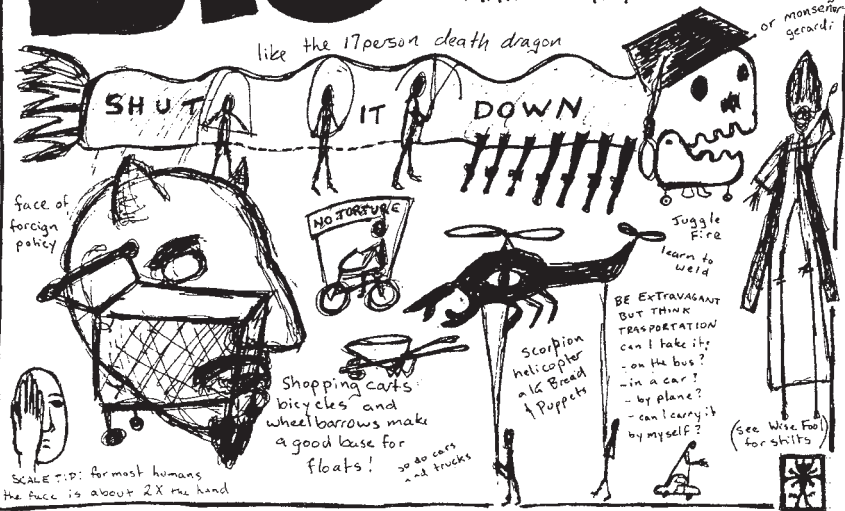 or monseñor
gerardi
like the 17person death dragon
SHUT IT DOWN
face of
foreign
policy
NO TORTURE
Juggle
Fire
learn to
weld
BE ExTravagant
BUT THINK
TRASPORTATION
can I take it:
- on the bus?
- in a car?
- by plane?
- can I carry it
by myself?
scorpion
helicopter
a la Bread
& Puppets
Shopping carts
bicycles and
wheelbarrows make
a good base for
floats!
so do cars
and trucks
(See Wise Fool
for stilts)
SCALE TIP: for most humans
the face is about 2X the hand